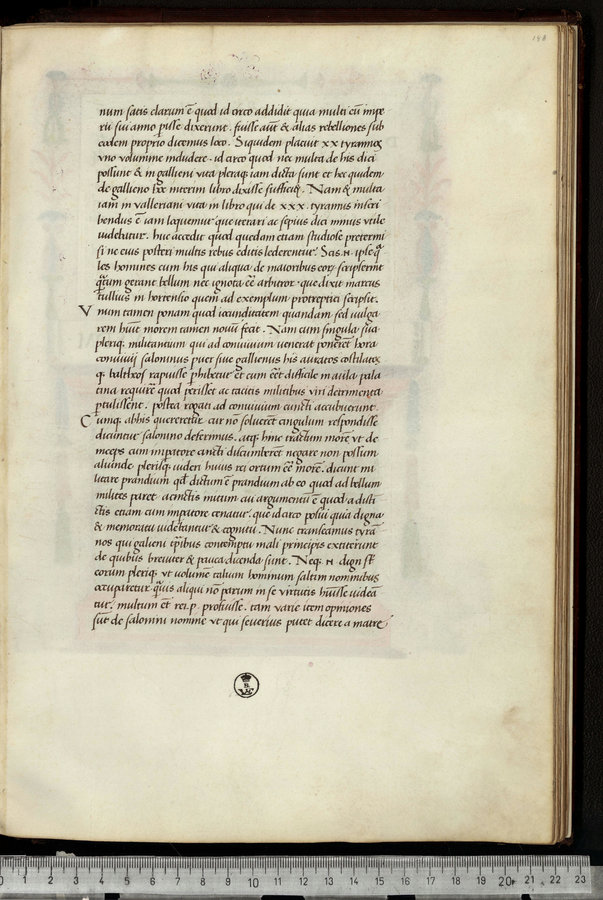 148
num satis clarum ē quod id circo addidit quia multi eū impe
rii sui anno pisse dixerunt. fuisse aūt & alias rebelliones sub
eodem proprio dicemus loco. Siquidem placuit xx tyrannos
vno volumine includere. id circo quod nec multa de his dici
possunt & in gallieni vita pleraq; iam dicta sunt et hęc quidem
de gallieno hoc interim libro dixisse sufficiet. Nam & multa
iam in valleriani vita in libro qui de xxx. tyrannis inscri
bendus ē iam loquemur. que iterari ac sepius dici minus vtile
uidebatur. huc accedit quod quędam etiam studiose pretermi
si ne eius posteri multis rebus editis lederentur. Scis .N. ipse q̄
les homines cum his qui aliqua de maioribus eorz scripserint
q̄tum gerant bellum nec ignota eē arbitror. que dixit marcus
tullius in hortensio quem ad exemplum protreptici scripsit.
Vnum tamen ponam quod iocunditatem quandam sed vulga
rem huīt morem tamen nouū fecit. Nam cum singula sua
pleriq; militantium qui ad conuiuium uenerāt ponerēt hora
conuiuij saloninus puer siue gallienus his auratos costilatos
q; baltheos rapuisse phibetur et cum eēt difficile in aula pala
tina requirere quod perisset ac tacitis militibus viri detrimenta
ptulissent. postea rogati ad conuiuium cuncti accubuerunt
Cumq; abhis quereretur cur nō soluerēt cingulum respondisse
dicuntur salonino deferimus. atq; hinc tractum morē vt de
inceps cum impatore cincti discumberēt negare non possum
aliunde plerisq; uideri huius rei ortum eē morē. dicunt mi
litare prandium qd dictum ē prandium ab eo quod ad bellum
milites paret acinctis initum cui argumentū ē quod a disti
ctis etiam cum impatore cenatur. que id circo posui quia digna
& memoratu uidebantur & cognitu. Nunc transeamus tyrā
nos qui galieni tpibus contemptu mali principis extiterunt
de quibus breuiter & pauca dicenda sunt. Neq; .N. digni sūt
eorum pleriq; vt volumē talium hominum saltim nominibus
occupatetur q̄uis aliqui nō parum in se virtutis huisse uideā
tur. multum et rei.p. profuisse. tam varie item opiniones
sūt de salonini nomine vt qui seuerius putet dicere a matre
0 1 2 3 4 5 6 7 8 9 10 11 12 13 14 15 16 17 18 19 20 21 22 23